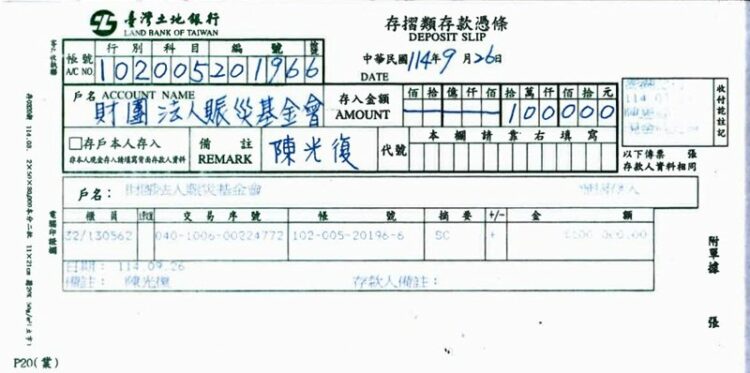 臺灣土地銀行
LAND BANK OF TAIWAN
存摺類存款憑條
DEPOSIT SLIP
中華民國114年9月26日
DATE
帳號
A/C NO.
行別 科目 編號
102005201966
戶名 ACCOUNT NAME
財團法人賑災基金會
存入金額
AMOUNT
佰拾億仟佰拾萬仟佰拾元
100000
收付訖註記
□存戶本人存入
非本人現金存入請填寫背面存款人資料
備註
REMARK
陳光復
代號
本欄請靠右填寫
以下傳票 張
存款人資料相同
戶名: 財團法人賑災基金會
櫃員 交易序號 帳號 摘要 +/- 金額
32/130562 040-1006-00224772 102-005-20196-6 SC +
日期: 114.09.26
備註: 陳光復 存款人備註:
附單據 張
P20(業)